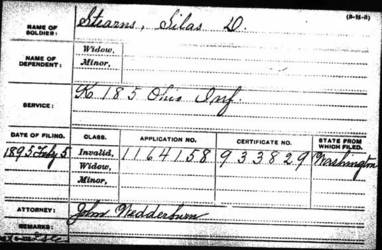 (3-H-8)
NAME OF SOLDIER: Stearns, Silas D.
NAME OF DEPENDENT: Widow,
Minor,
SERVICE: K 185 Ohio Inf.
DATE OF FILING. CLASS. APPLICATION NO. CERTIFICATE NO. STATE FROM WHICH FILED.
1895 July 5 Invalid, 1164158 933829 Washington
Widow,
Minor,
ATTORNEY: John Wedderburn
REMARKS: